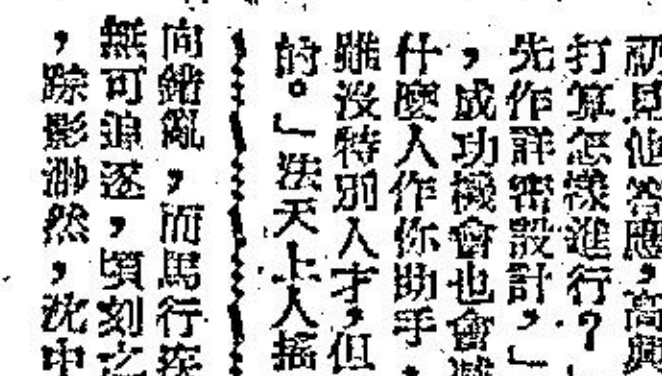 見他答應，高興
打算怎樣進行？
先作詳密設計，」
，成功機會也會減
什麼人作你助手，
雖沒特別人才，但
的。」法天上人搖
向錯亂，而馬行疾
無可追逐，頃刻之
，踪影渺然，沈中